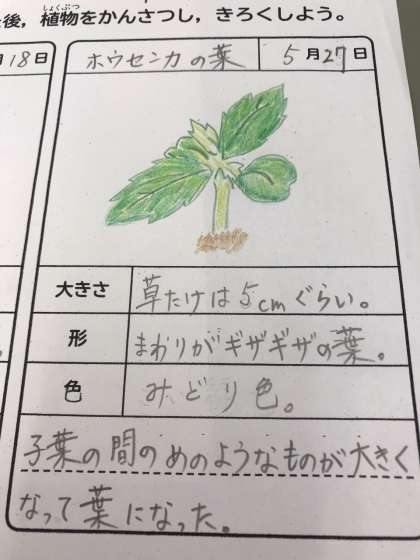 後，植物をかんさつし，きろくしよう。
しょくぶつ
月18日
ホウセンカの葉 5月27日
大きさ 草たけは5cmぐらい。
形 まわりがギザギザの葉。
色 みどり色。
子葉の間のめのようなものが大きく
なって葉になった。